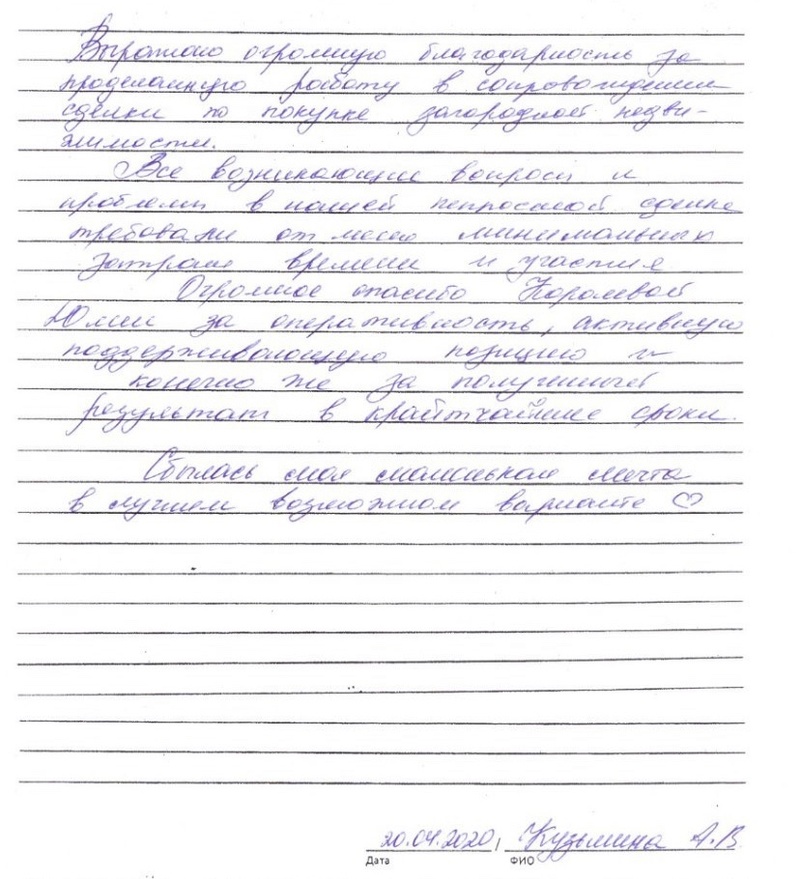 Выражаю огромную благодарность за
проделанную работу в сопровождении
сделки по покупке загородной недви-
жимости.
Все возникающие вопросы и
проблемы в нашей непростой сделке
требовали от меня минимальных
затрат времени и участия
Огромное спасибо Королевой
Юлии за оперативность, активную
поддерживающую позицию и
конечно же за полученный
результат в кратчайшие сроки.
Сбылась моя маленькая мечта
в лучшем возможном варианте ♡
20.04.2020, Кузьмина А.В.
Дата ФИО